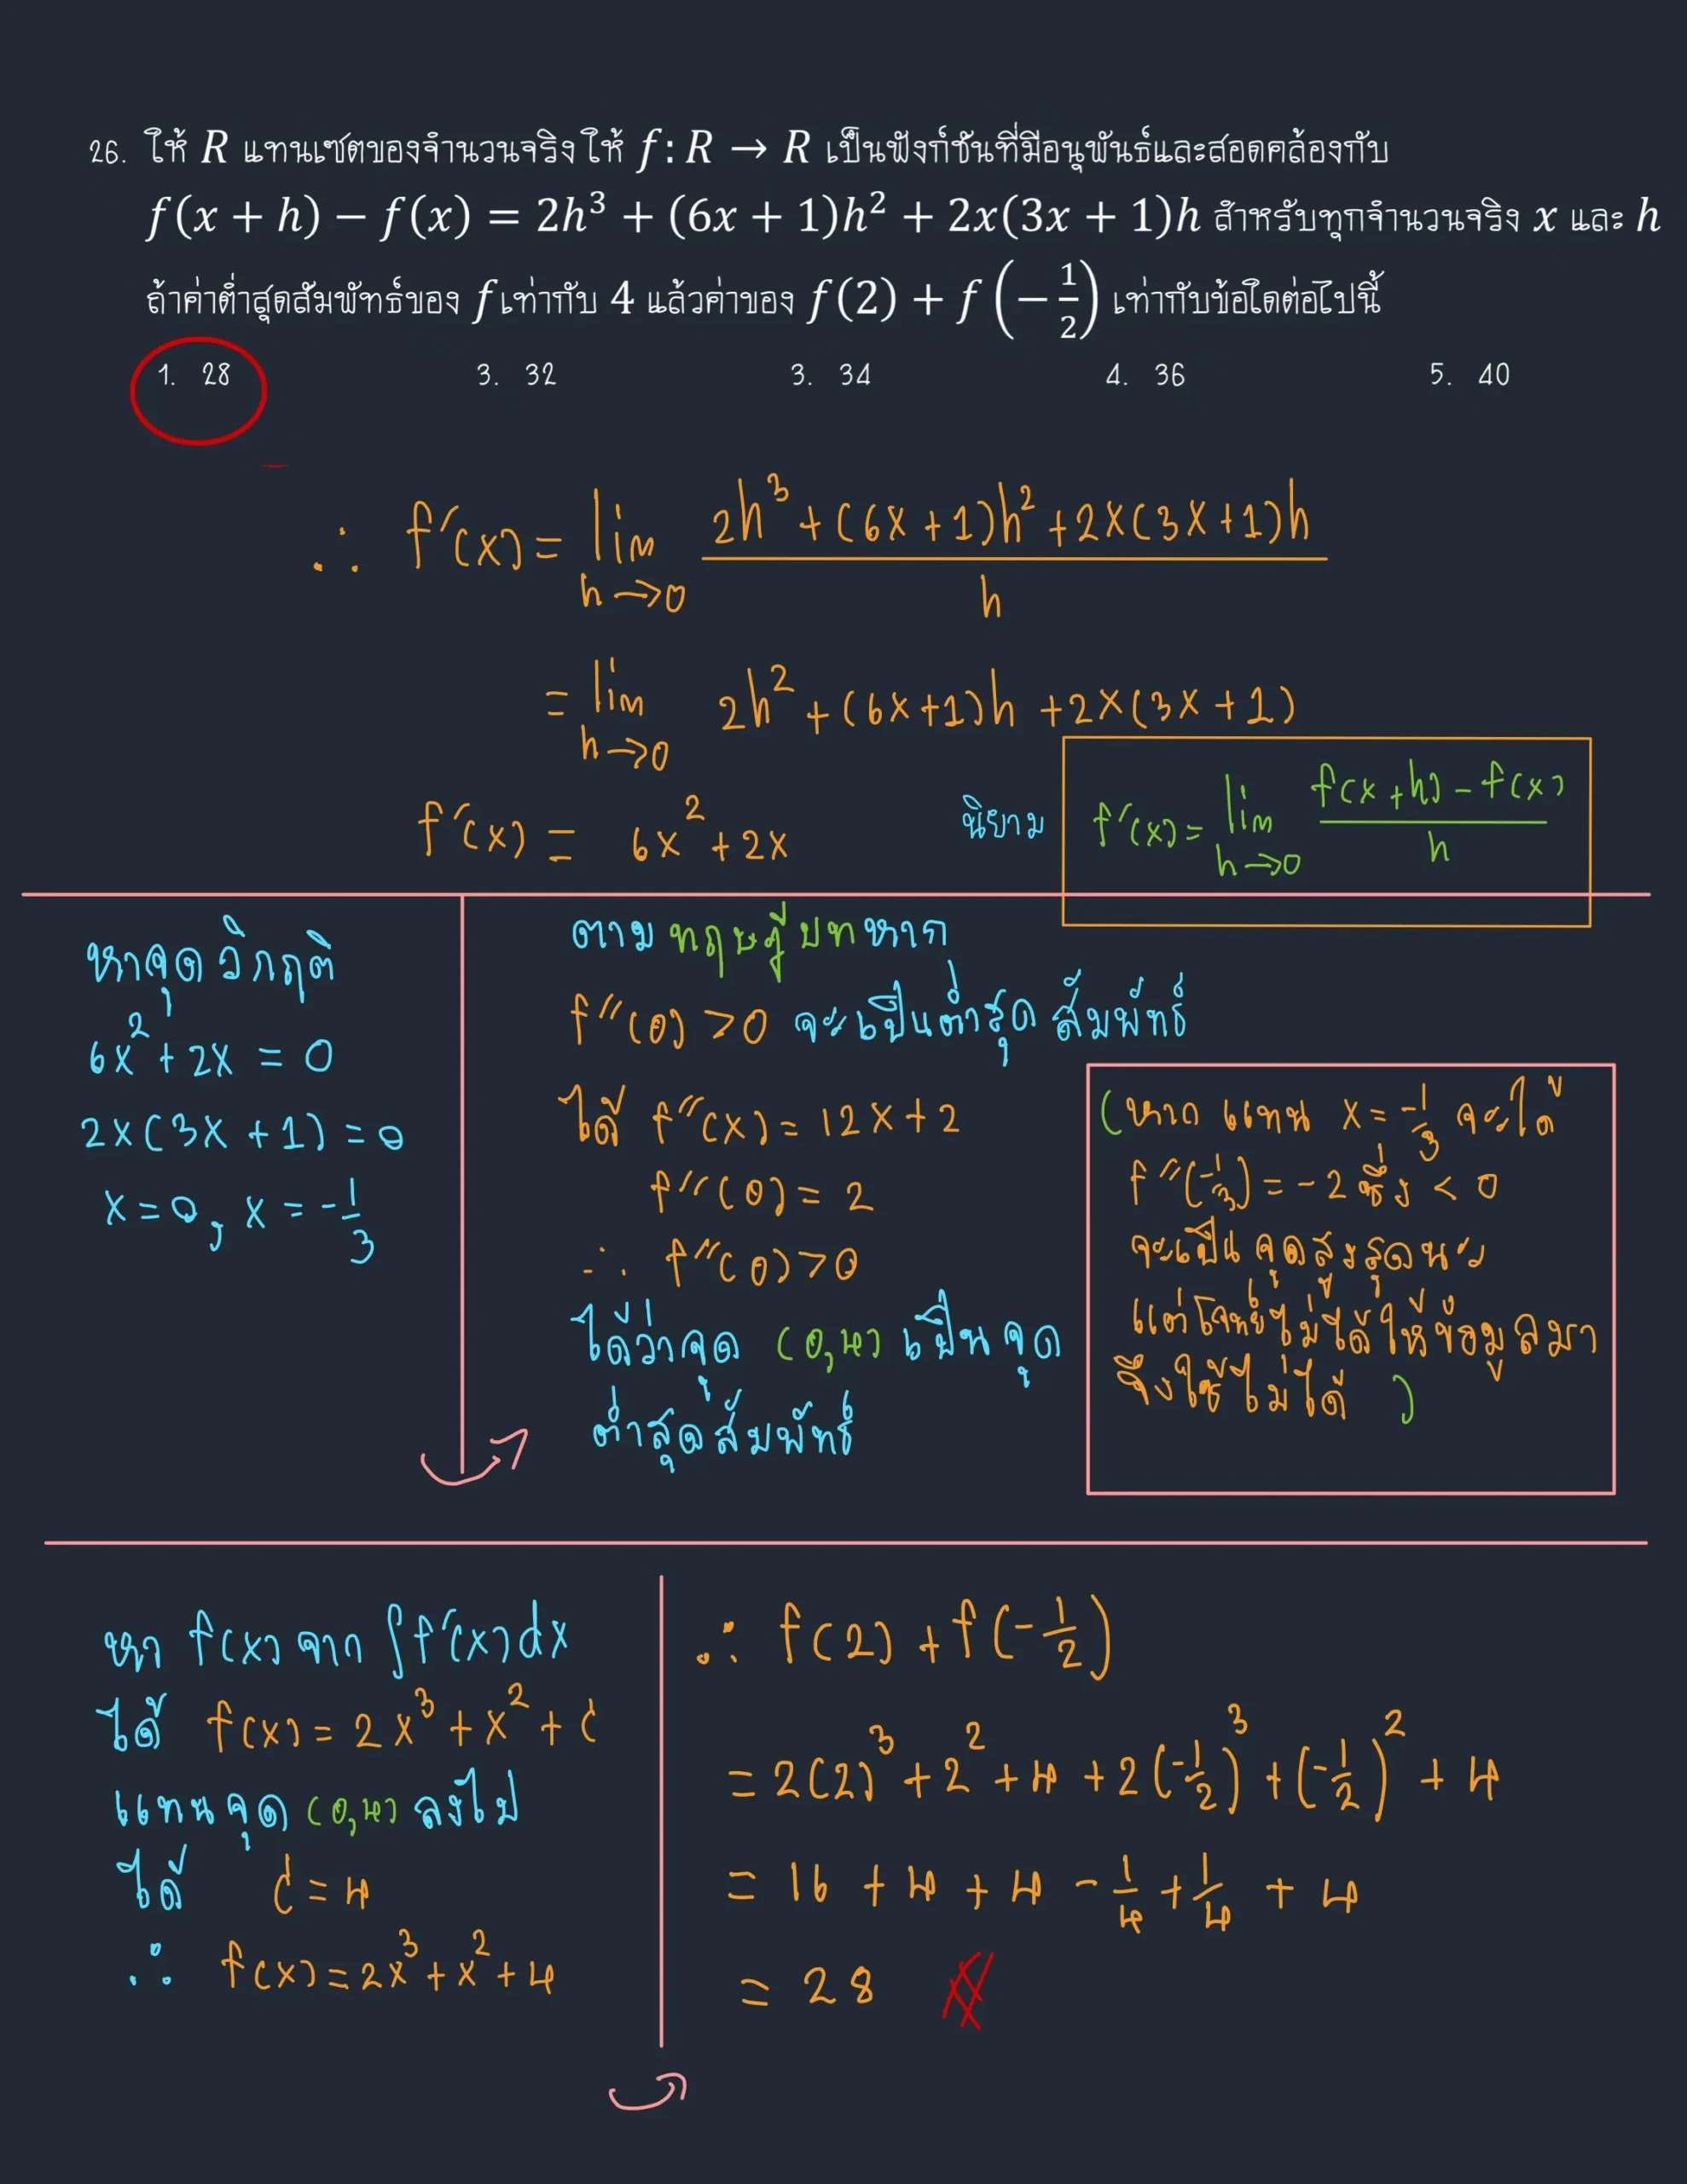 26. ให้ R แทนเซตของจำนวนจริง ให้ f: R → R เป็นฟังก์ชันที่มีอนุพันธ์และสอดคล้องกับ
f(x + h) − f(x) = 2h³ + (6x + 1)h² + 2x(3x + 1)h สำหรับทุกจำนวนจริง x และ h
ถ้าค่าต่ำสุดสัมพัทธ์ของ f เท่ากับ 4 แล้วค่าของ f(2) + f(−1/2) เท่ากับข้อใดต่อไปนี้
1. 28 3. 32 3. 34 4. 36 5. 40
∴ f′(x) = lim h→0 (2h³ + (6x + 1)h² + 2x(3x + 1)h)/h
= lim h→0 2h² + (6x+1)h + 2x(3x + 1)
f′(x) = 6x² + 2x
นิยาม f′(x) = lim h→0 (f(x+h) − f(x))/h
หาจุดวิกฤติ
6x² + 2x = 0
2x(3x + 1) = 0
x = 0, x = −1/3
ตามทฤษฎีบทหาก
f″(0) > 0 จะเป็นต่ำสุดสัมพัทธ์
ได้ f″(x) = 12x + 2
f″(0) = 2
∴ f″(0) > 0
ได้ว่าจุด (0,4) เป็นจุด
ต่ำสุดสัมพัทธ์
(หาก แทน x = −1/3 จะได้
f″(−1/3) = −2 ซึ่ง < 0
จะเป็นจุดสูงสุดนะ
แต่โจทย์ไม่ได้ให้ข้อมูลมา
จึงใช้ไม่ได้ )
หา f(x) จาก ∫f′(x)dx
ได้ f(x) = 2x³ + x² + c
แทนจุด (0,4) ลงไป
ได้ c = 4
∴ f(x) = 2x³ + x² + 4
∴ f(2) + f(−1/2)
= 2(2)³ + 2² + 4 + 2(−1/2)³ + (−1/2)² + 4
= 16 + 4 + 4 − 1/4 + 1/4 + 4
= 28